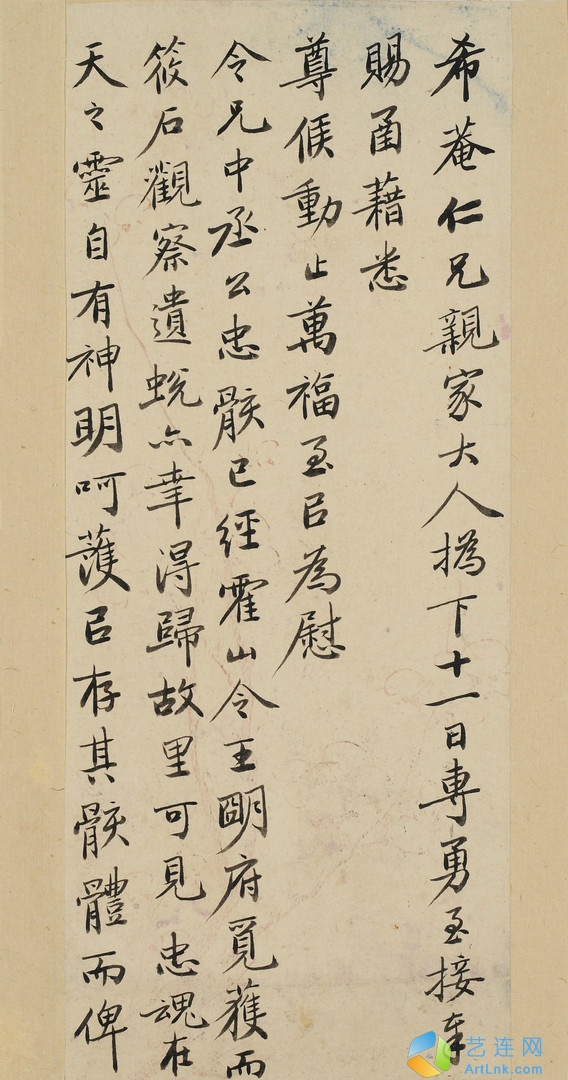 希菴仁兄親家大人撝下十一日專勇至接奉
賜函藉悉
尊候動止萬福至㠯為慰
令兄中丞公忠骸已經霍山令王明府覓蒦而
筱石觀察遺蛻亦幸得歸故里可見忠魂在
天之靈自有神明呵護㠯存其骸體而俾
艺连网
ArtLnk.com